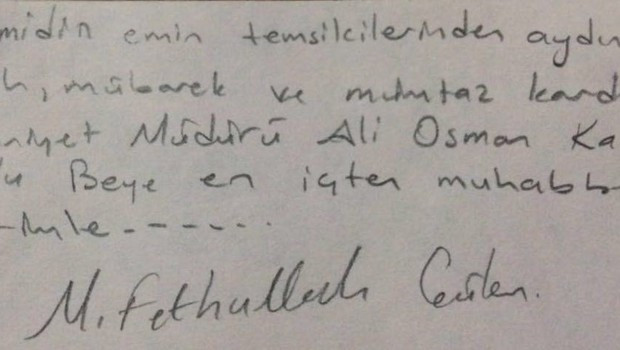 midin emin temsilcilerinden aydın
h, mübarek ve mümtaz kard
niyet Müdürü Ali Osman Ka
'u Beye en içten muhabb
-imle-------
M. Fethullah Gülen.